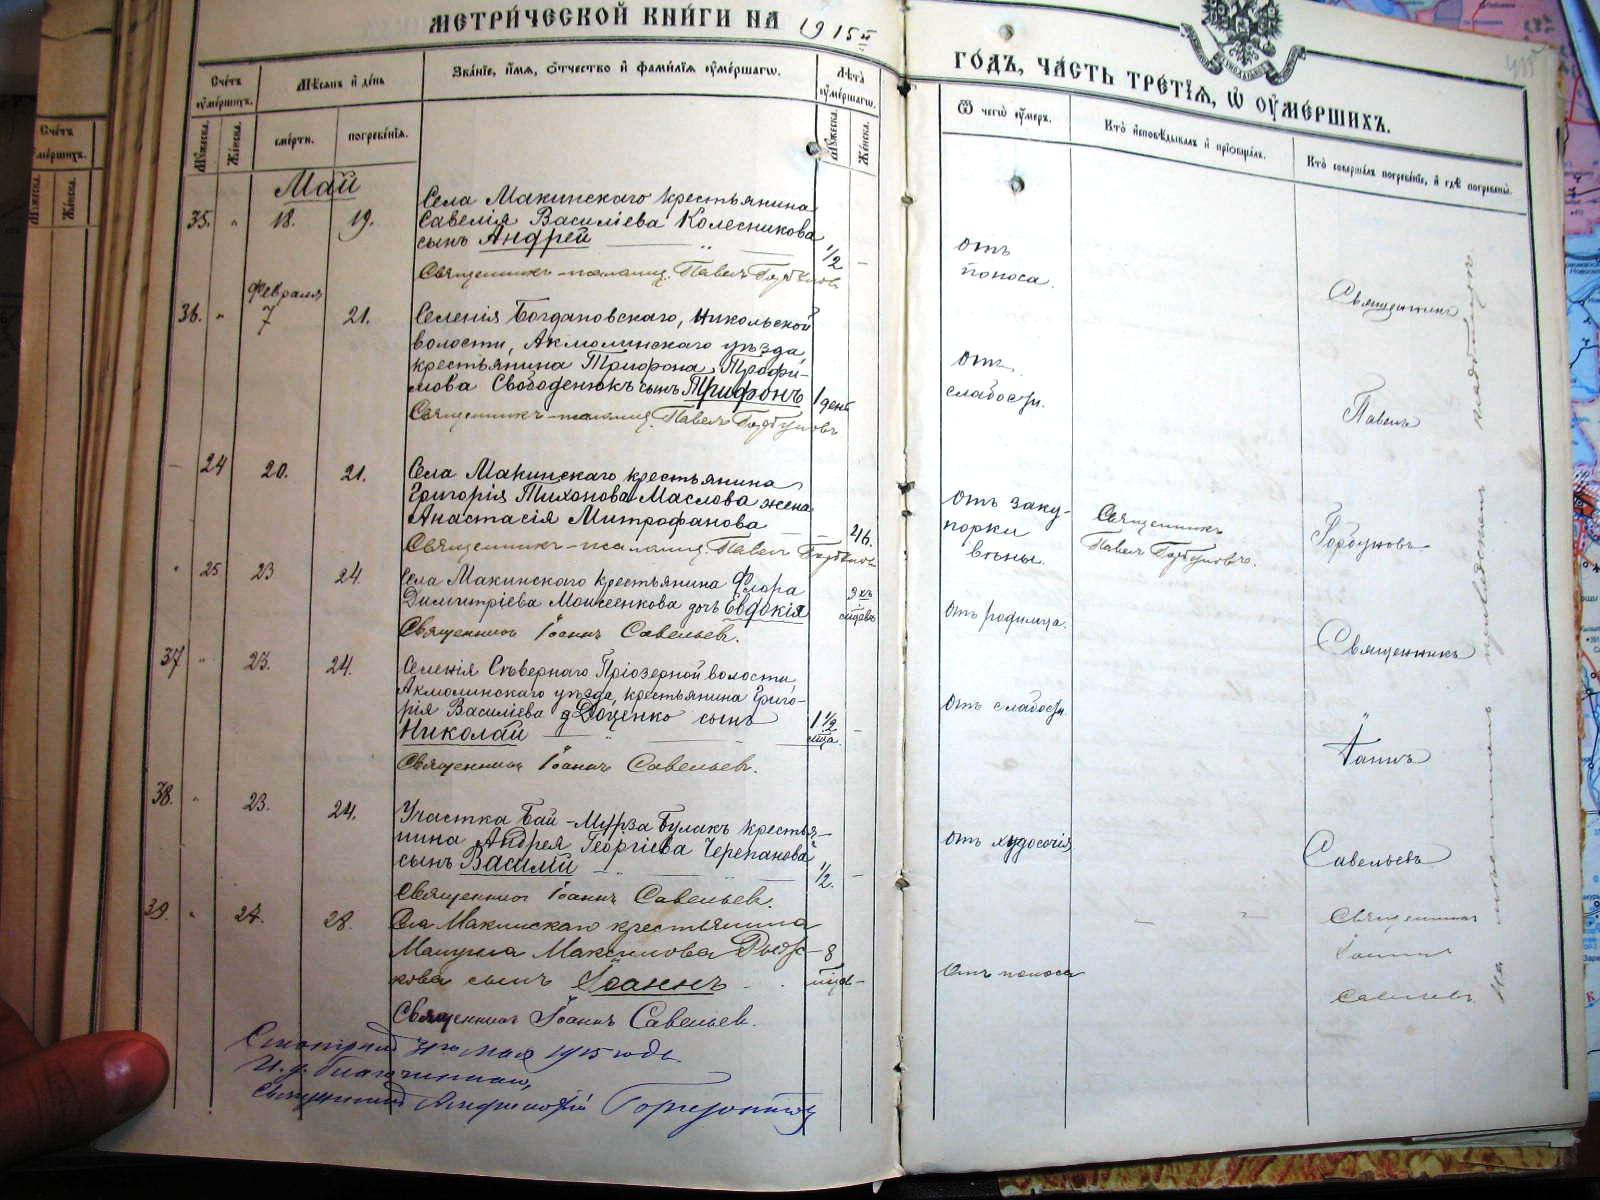 МЕТРИЧЕСКОЙ КНИГИ НА 1915й
ГОДЪ, ЧАСТЬ ТРЕТІЯ, Ѿ ОУМЕРШИХЪ.
Счетъ оумершихъ.
Мѣсяцъ и день
Званіе, имя, отчество и фамилія оумершагѡ.
Лѣта оумершагѡ.
Ѿ чегѡ оумеръ.
Кто исповѣдывалъ и пріобщалъ.
Кто совершалъ погребеніе, и гдѣ погребены.
Мужеска.
Женска.
смерти.
погребенія.
Мужеска.
Женска.
Май
35. " 18. 19.
Села Макинскаго крестьянина
Савелія Василіева Колесникова
сынъ Андрей
1/2
отъ
поноса.
Священникъ-псаломщ. Павелъ Горбуновъ
Февраля
36. " 7 21.
Селенія Богдановскаго, Никольской
волости, Акмолинскаго уѣзда,
крестьянина Трифона Трофи-
мова Свободенюкъ сынъ Трифонъ
1 день
отъ
слабости.
Священникъ-псаломщ. Павелъ Горбуновъ
— 24 20. 21.
Села Макинскаго крестьянина
Григорія Тихонова Маслова жена
Анастасія Митрофанова
46.
отъ заку-
порки
вены.
Священникъ
Павелъ Горбуновъ.
Священникъ-псаломщ. Павелъ Горбуновъ
" 25 23 24.
Села Макинскаго крестьянина Флора
Димитріева Моисеенкова дочь Евдокія
отъ родимца.
Священникъ Іоаннъ Савельевъ.
37 " 23. 24.
Селенія Сѣвернаго Пріозерной волости
Акмолинскаго уѣзда, крестьянина Григо-
рія Василіева Доценко сынъ
Николай
1 1/2
мѣсяца
отъ слабости.
Священникъ Іоаннъ Савельевъ.
38. " 23. 24.
Участка Бай-Мурза Булакъ крестья-
нина Андрея Георгіева Черепанова
сынъ Василій
1/2.
отъ худосочія
Священникъ Іоаннъ Савельевъ.
39. " 28.
Села Макинскаго крестьянина
Максимова
сынъ Іоаннъ
8
отъ поноса
Священникъ Іоаннъ Савельевъ.
Священникъ
Павелъ
Горбуновъ.
Священникъ
Іоаннъ
Савельевъ
Священникъ
Іоаннъ
Савельевъ
На
кладбищѣ
мая 1915 года
И. д. благочиннаго,
Священникъ